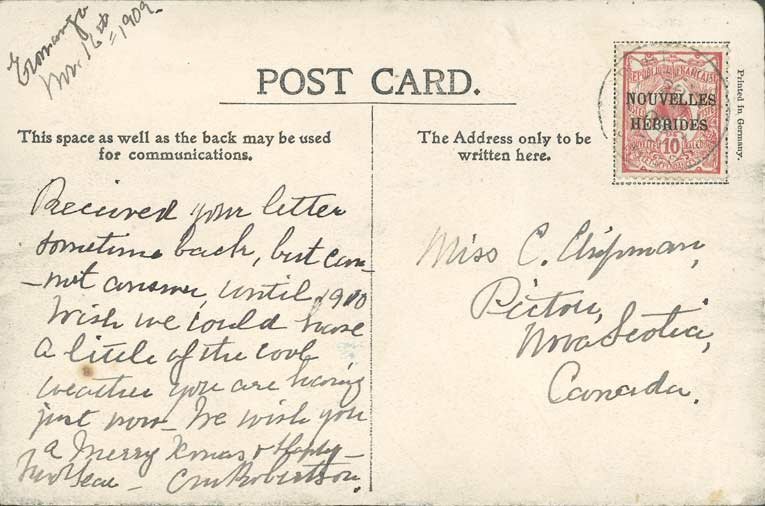 Eromanga
Nov. 16th 1909
POST CARD.
This space as well as the back may be used
for communications.
The Address only to be
written here.
REPUBLIQUE FRANÇAISE
NOUVELLES
HÉBRIDES
10
Printed in Germany.
Received your letter
sometime back, but can-
-not answer, until, 1910
Wish we could have
a little of the cool
weather you are having
just now_ We wish you
a Merry Xmas & Happy-
New Year - CmRobertson.
Miss C. Chipman,
Pictou,
Nova Scotia,
Canada.